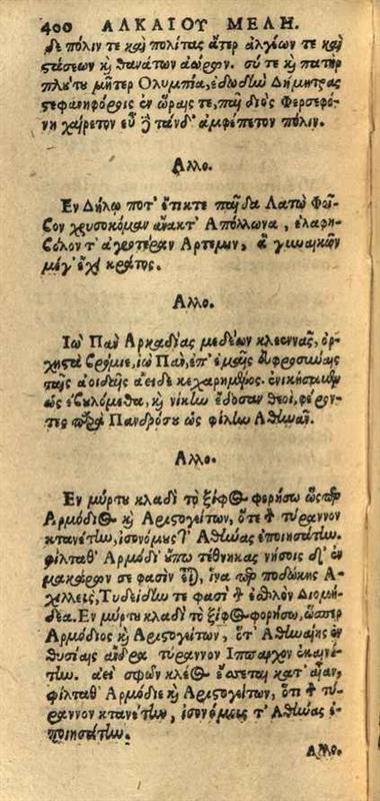 400 ΑΛΚΑΙΟΥ ΜΕΛΗ.
δε πόλιν τε καὶ πολίτας ἄτερ ἀλγέων τε καὶ
στάσεων καὶ θανάτων ἀώρων. σύ τε καὶ πατὴρ
πλούτου μῆτερ Ολυμπία, ἐδωδίω Δήμητρας
στεφανηφόροις ἐν ὥραις τε, παῖ διὸς Φερσεφό-
νη χαίρετον εὖ δὲ τάνδ' ἀμφέπετον πόλιν.
Αλλο.
Εν Δήλῳ ποτ' ἔτικτε παῖδα Λατὼ Φοῖ-
βον χρυσοκόμαν ἄνακτ' Απόλλωνα, ἐλαφη-
βόλον τ' ἀγροτέραν Αρτεμιν, ἃ γυναικῶν
μέγ' ἔχει κράτος.
Αλλο.
Ιὼ Πὰν Αρκαδίας μεδέων κλεεννᾶς, ὀρ-
χηστὰ βρόμιε, ἰὼ Πὰν, ἐπ' ἐμαῖς εὐφροσύναις
ταῖς ἀοιδαῖς ἄειδε κεχαρημένος. ἐνικήσαμεν
ὡς ἐβουλόμεθα, καὶ νίκην ἔδοσαν θεοὶ, φέρον-
τες παρὰ Πανδρόσου ὡς φίλην Αθηνᾶν.
Αλλο.
Εν μύρτου κλαδὶ τὸ ξίφος φορήσω ὥσπερ
Αρμόδιος καὶ Αριστογείτων, ὅτε τὸν τύραννον
κτανέτην, ἰσονόμους τ' Αθήνας ἐποιησάτην.
φίλταθ' Αρμόδι' οὔπω τέθνηκας νήσοις δ' ἐν
μακάρων σε φασὶν εἶναι, ἵνα περ ποδώκης Α-
χιλλεὺς, Τυδείδην τε φασὶ τὸν ἐσθλὸν Διομή-
δεα. Εν μύρτου κλαδὶ τὸ ξίφος φορήσω, ὥσπερ
Αρμόδιος καὶ Αριστογείτων, ὅτ' Αθηναίης ἐν
θυσίαις ἄνδρα τύραννον Ιππαρχον ἐκαινέ-
την. ἀεὶ σφῶν κλέος ἔσσεται κατ' αἶαν,
φίλταθ' Αρμόδιε καὶ Αριστογείτων, ὅτι τὸν τύ-
ραννον κτανέτην, ἰσονόμους τ' Αθήνας ἐ-
ποιησάτην.
Αλλο.